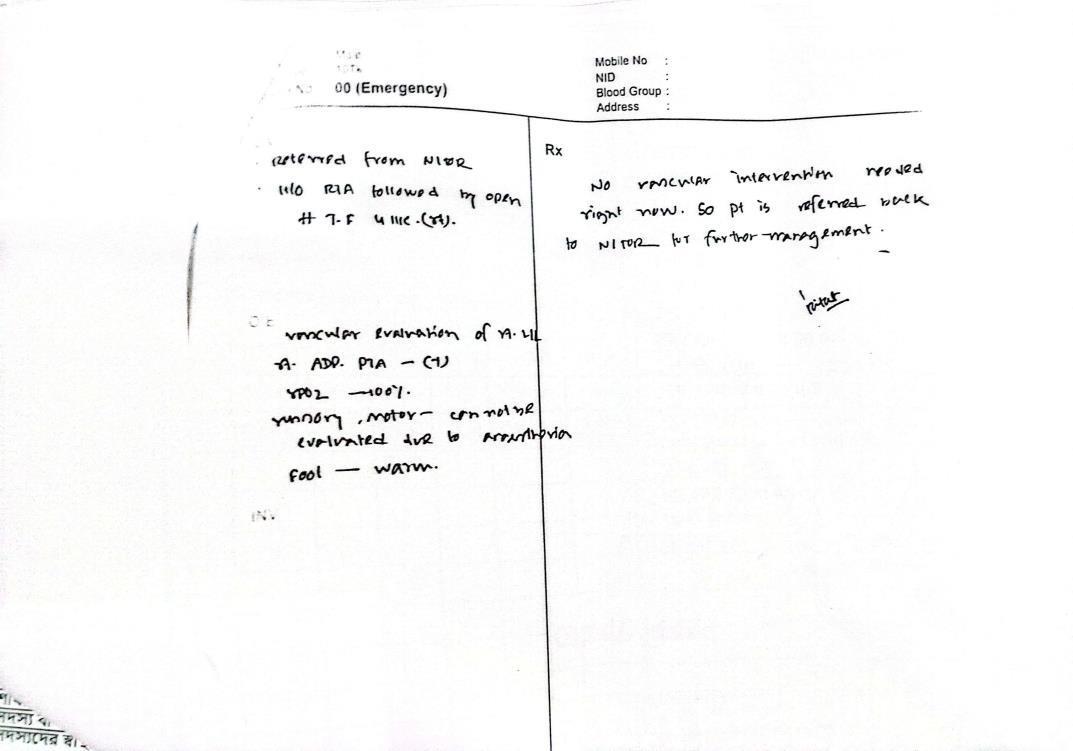 Male
00 (Emergency)
Mobile No :
NID :
Blood Group :
Address :
Referred from NITOR
H/O RTA followed by open
# T-F U IIIC (Rt).
O/E
vascular evaluation of Rt. LL
Rt. ADP. PTA — (+)
SPO2 — 100%.
sensory, motor — can not be
evaluated due to anaesthesia
Foot — warm.
INV
Rx
No vascular intervention needed
right now. So pt is referred back
to NITOR for further management.
সদস্য
সদস্যদের স্বা